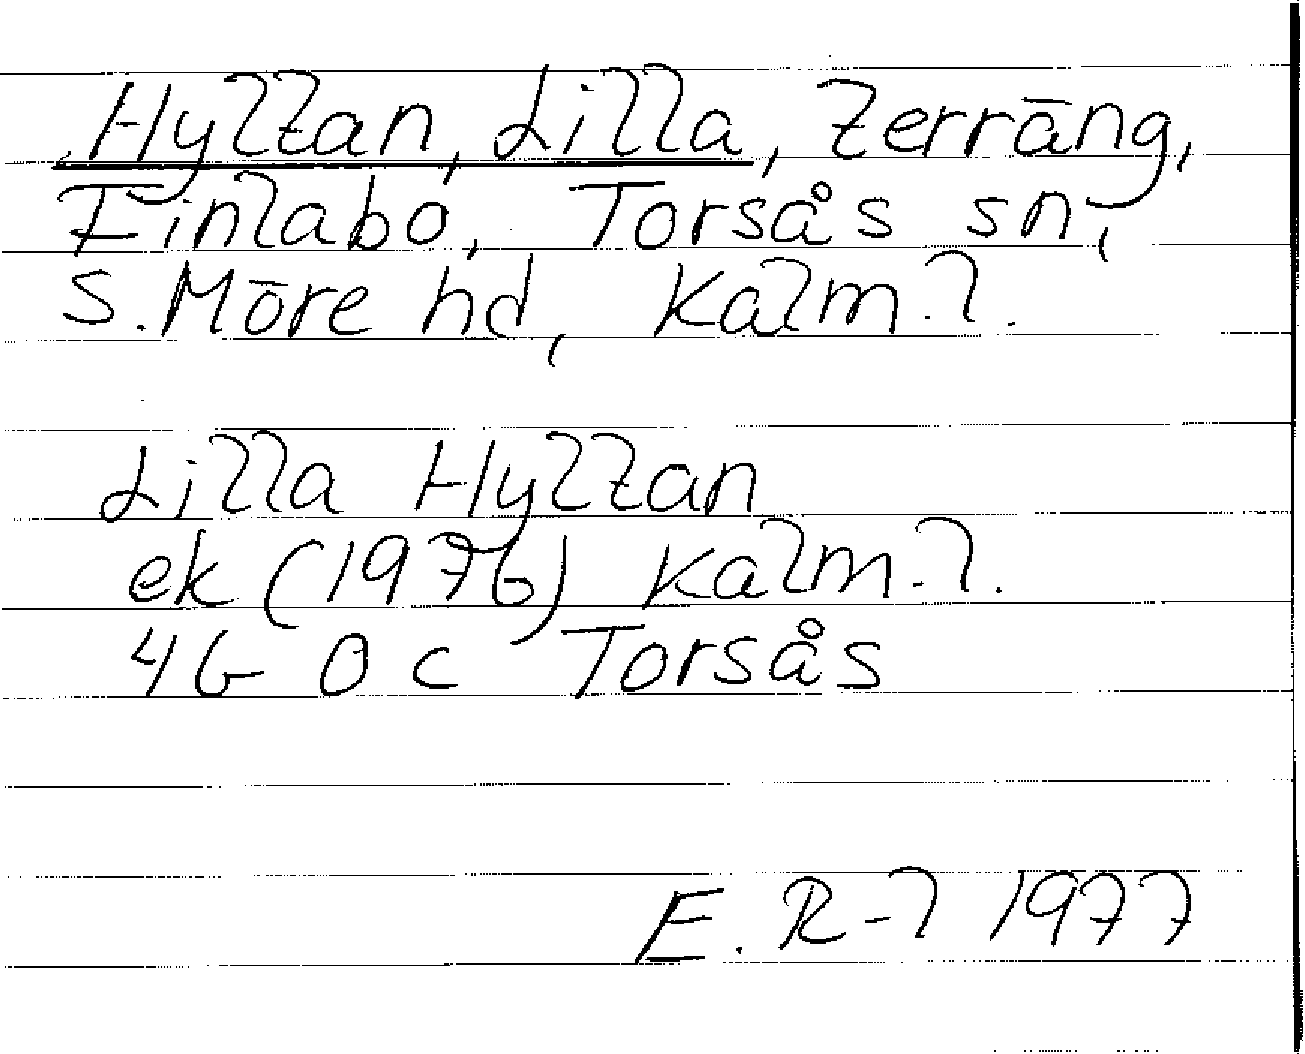 Hyltan, Lilla, terräng,
Finlabo, Torsås sn,
S. Möre hd, Kalm. l.
Lilla Hyltan
ek (1976) Kalm. l.
4G 0c Torsås
E. R-l 1977